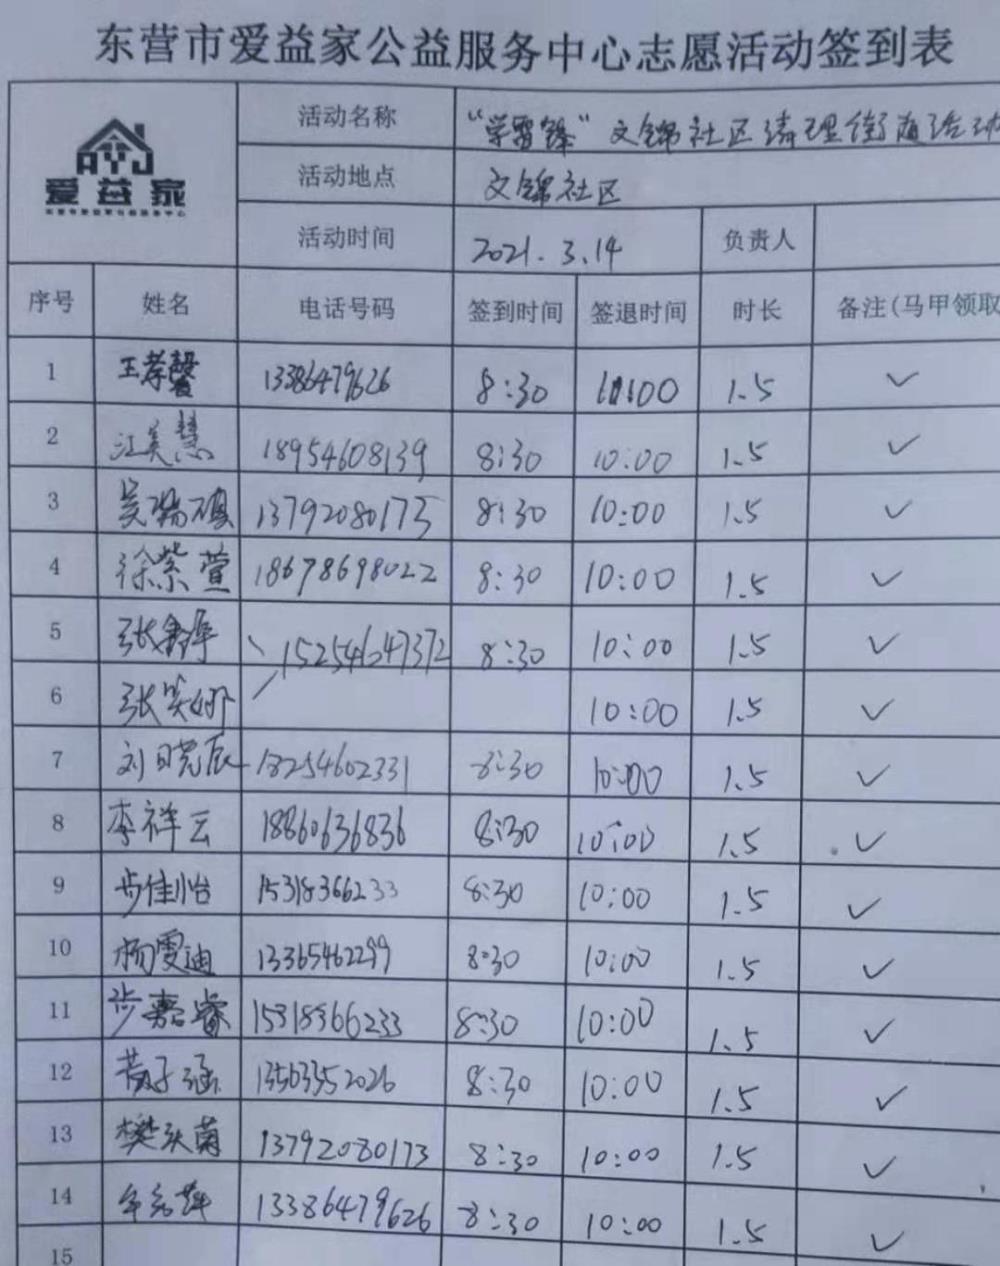 东营市爱益家公益服务中心志愿活动签到表
AYJ
爱益家
活动名称 "学雷锋"文锦社区清理街道活动
活动地点 文锦社区
活动时间 2021.3.14 负责人
序号 姓名 电话号码 签到时间 签退时间 时长 备注(马甲领取
1 王孝馨 13386479626 8:30 10:00 1.5 ✓
2 江美慧 18954608139 8:30 10:00 1.5 ✓
3 吴瑞硕 13792080173 8:30 10:00 1.5 ✓
4 徐紫萱 18678698022 8:30 10:00 1.5 ✓
5 张 15254647372 8:30 10:00 1.5 ✓
6 张笑娜 10:00 1.5 ✓
7 刘日晓辰 18254602331 8:30 10:00 1.5 ✓
8 李祥云 18860636836 8:30 10:00 1.5 ✓
9 步佳怡 15318366233 8:30 10:00 1.5 ✓
10 杨雯迪 13365462299 8:30 10:00 1.5 ✓
11 步嘉睿 15318366233 8:30 10:00 1.5 ✓
12 子涵 13563352026 8:30 10:00 1.5 ✓
13 樊庆菊 13792080173 8:30 10:00 1.5 ✓
14 13386479626 8:30 10:00 1.5 ✓
15